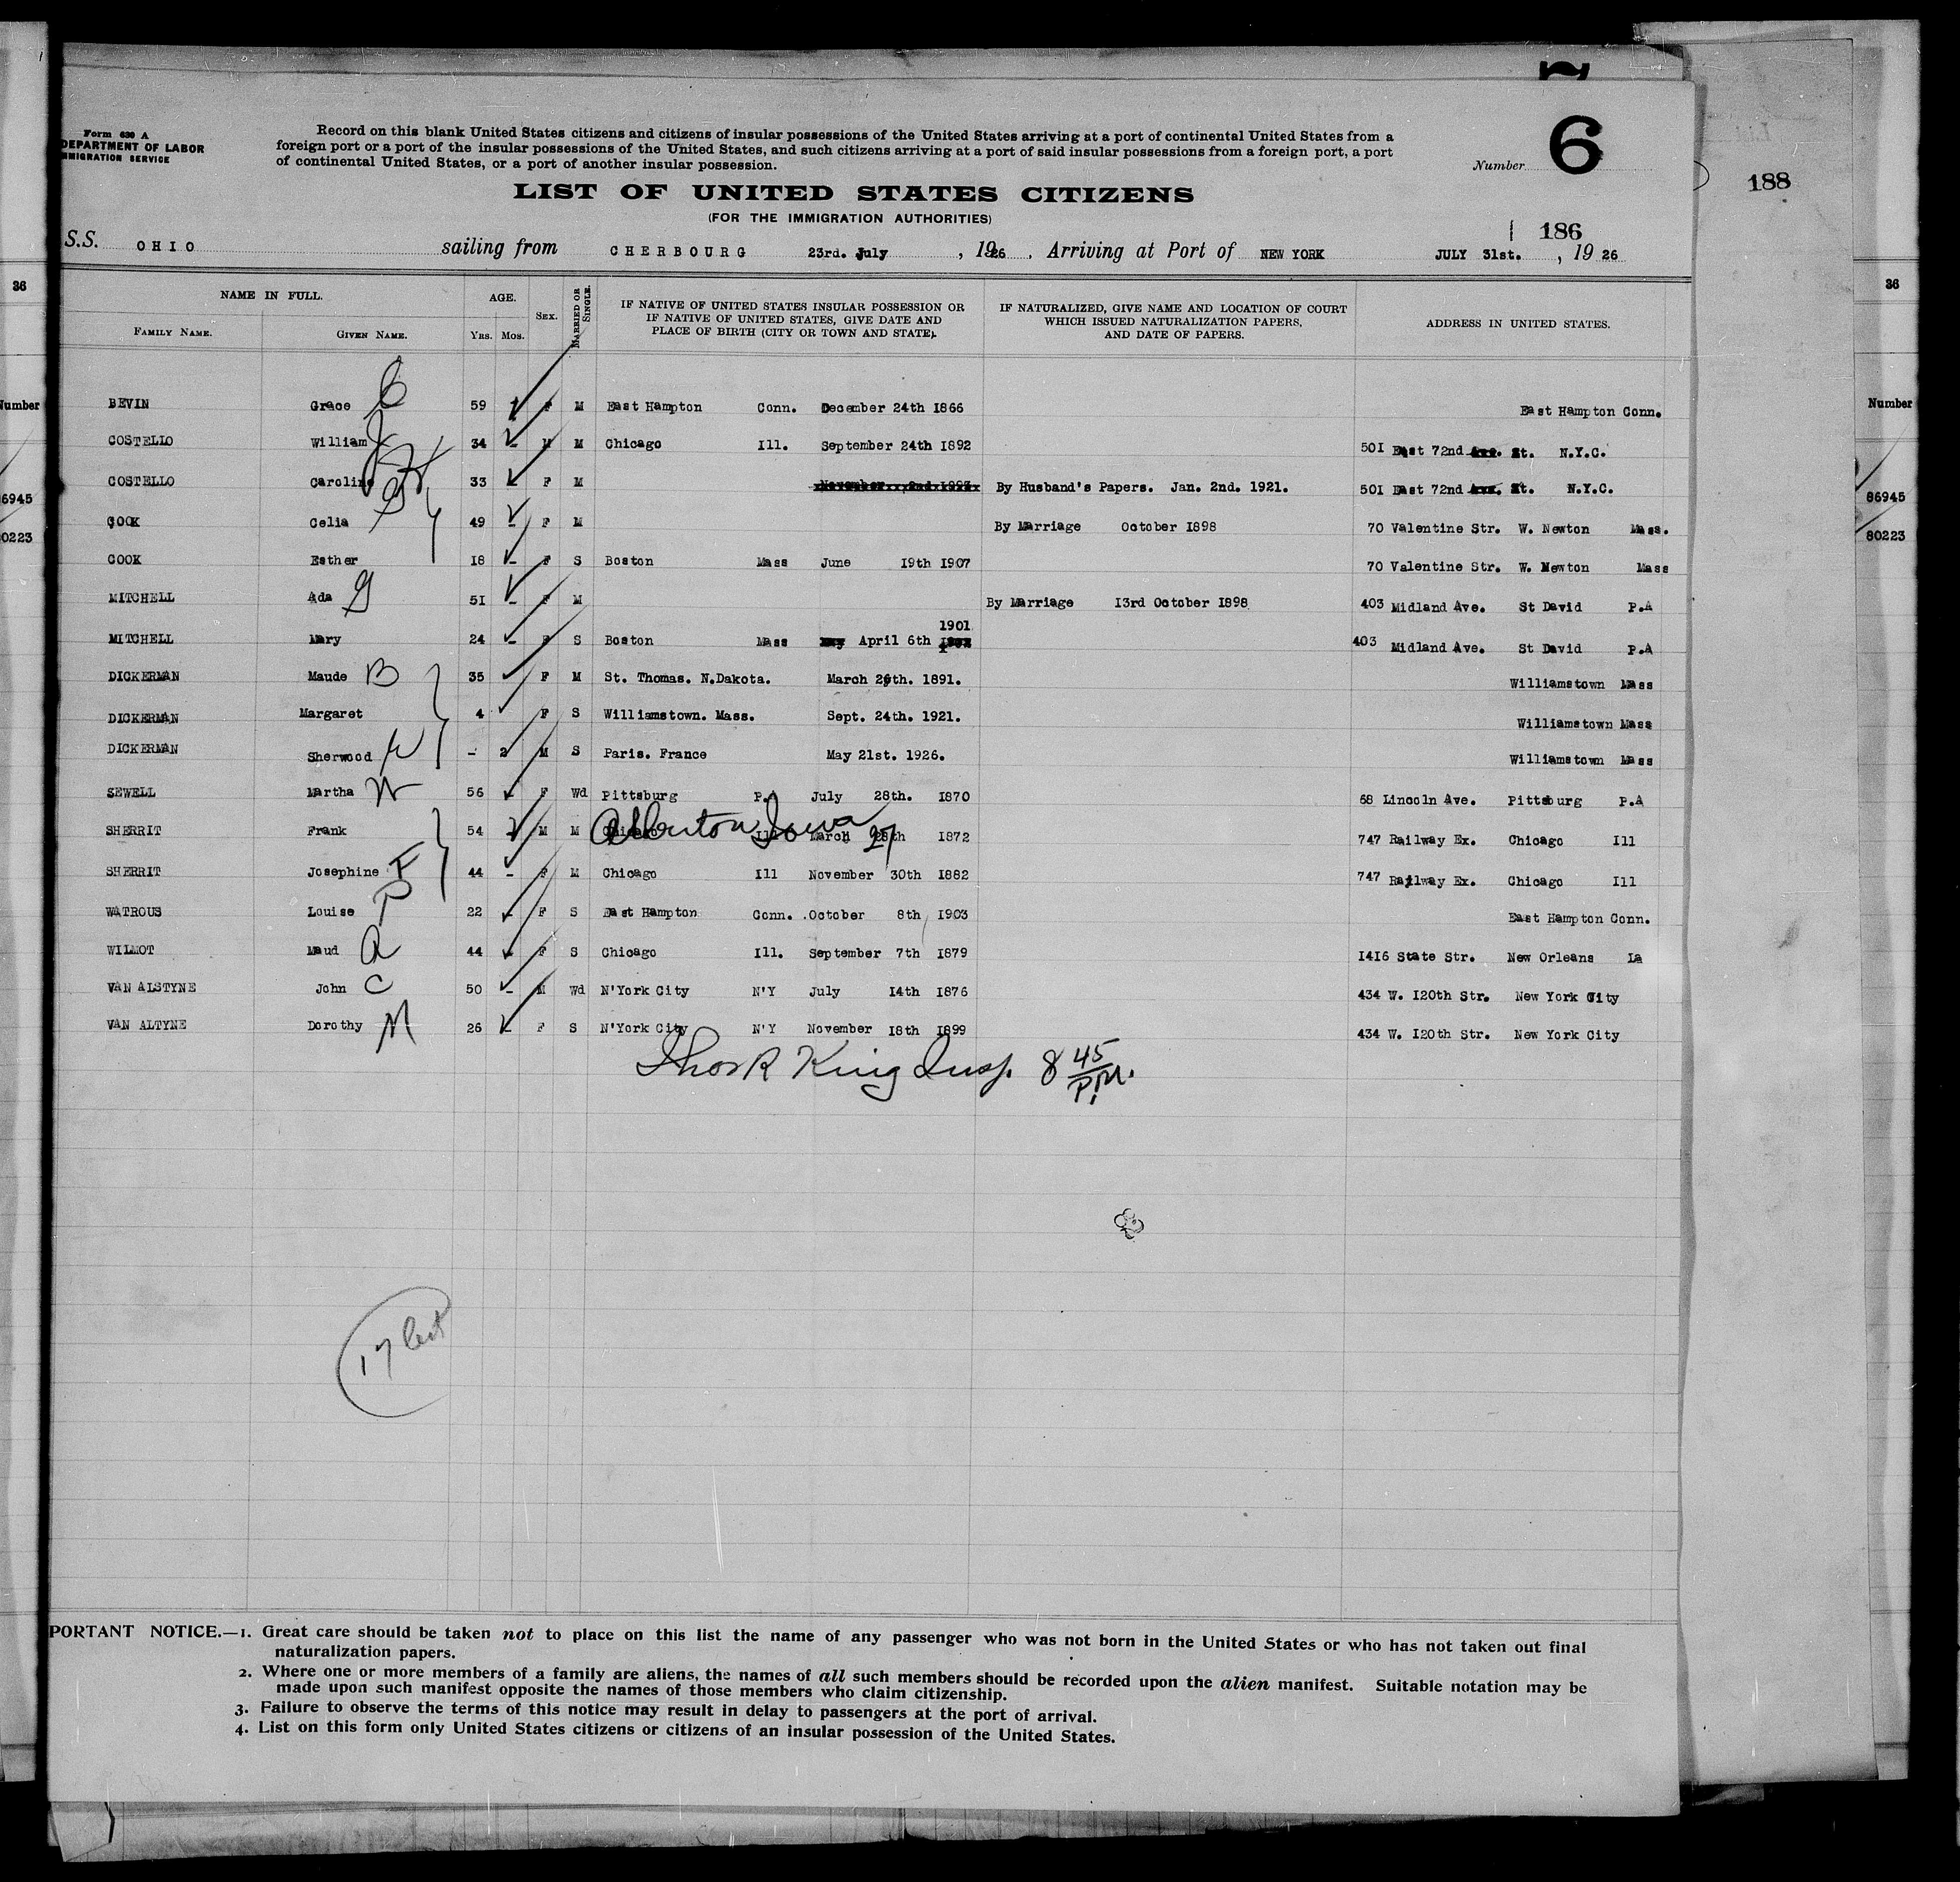 Form 630 A
DEPARTMENT OF LABOR
MMIGRATION SERVICE
Record on this blank United States citizens and citizens of insular possessions of the United States arriving at a port of continental United States from a
foreign port or a port of the insular possessions of the United States, and such citizens arriving at a port of said insular possessions from a foreign port, a port
of continental United States, or a port of another insular possession.
Number 6
188
LIST OF UNITED STATES CITIZENS
(FOR THE IMMIGRATION AUTHORITIES)
186
S.S. OHIO sailing from CHERBOURG 23rd. July , 1926 . Arriving at Port of NEW YORK JULY 31st. , 19 26
36
36
NAME IN FULL. AGE. SEX. MARRIED OR SINGLE. IF NATIVE OF UNITED STATES INSULAR POSSESSION OR
IF NATIVE OF UNITED STATES, GIVE DATE AND
PLACE OF BIRTH (CITY OR TOWN AND STATE). IF NATURALIZED, GIVE NAME AND LOCATION OF COURT
WHICH ISSUED NATURALIZATION PAPERS,
AND DATE OF PAPERS. ADDRESS IN UNITED STATES.
FAMILY NAME. GIVEN NAME. YRS. MOS.
Number
BEVIN Grace 59 F M East Hampton Conn. December 24th 1866 East Hampton Conn.
COSTELLO William J 34 - M M Chicago Ill. September 24th 1892 501 East 72nd Ave. St. N.Y.C.
COSTELLO Caroline 33 F M November 2nd 1893 By Husband's Papers. Jan. 2nd. 1921. 501 East 72nd Ave. St. N.Y.C.
86945
COOK Celia 49 - F M By Marriage October 1898 70 Valentine Str. W. Newton Mass.
80223
COOK Esther 18 - F S Boston Mass June 19th 1907 70 Valentine Str. W. Newton Mass
MITCHELL Ada G 51 - F M By Marriage 13rd October 1898 403 Midland Ave. St David P.A
MITCHELL Mary 24 - F S Boston Mass April 6th 1901 403 Midland Ave. St David P.A
DICKERMAN Maude B 35 F M St. Thomas. N.Dakota. March 26th. 1891. Williamstown Mass
DICKERMAN Margaret 4 F S Williamstown. Mass. Sept. 24th. 1921. Williamstown Mass
DICKERMAN Sherwood W - 2 M S Paris. France May 21st. 1926. Williamstown Mass
SEWELL Martha W 56 - F Wd Pittsburg P.A July 28th. 1870 68 Lincoln Ave. Pittsburg P.A
SHERRIT Frank 54 - M M Chicago Ill March 28th 27 1872 747 Railway Ex. Chicago Ill
SHERRIT Josephine F 44 - F M Chicago Ill November 30th 1882 747 Railway Ex. Chicago Ill
WATROUS Louise P 22 - F S East Hampton Conn. October 8th 1903 East Hampton Conn.
WILMOT Maud A 44 - F S Chicago Ill. September 7th 1879 1416 State Str. New Orleans La
VAN ALSTYNE John C 50 - M Wd N'York City N'Y July 14th 1876 434 W. 120th Str. New York City
VAN ALTYNE Dorothy M 26 - F S N'York City N'Y November 18th 1899 434 W. 120th Str. New York City
Thos R King Insp. 8 45 P.M.
17
PORTANT NOTICE.—1. Great care should be taken not to place on this list the name of any passenger who was not born in the United States or who has not taken out final
naturalization papers.
2. Where one or more members of a family are aliens, the names of all such members should be recorded upon the alien manifest. Suitable notation may be
made upon such manifest opposite the names of those members who claim citizenship.
3. Failure to observe the terms of this notice may result in delay to passengers at the port of arrival.
4. List on this form only United States citizens or citizens of an insular possession of the United States.